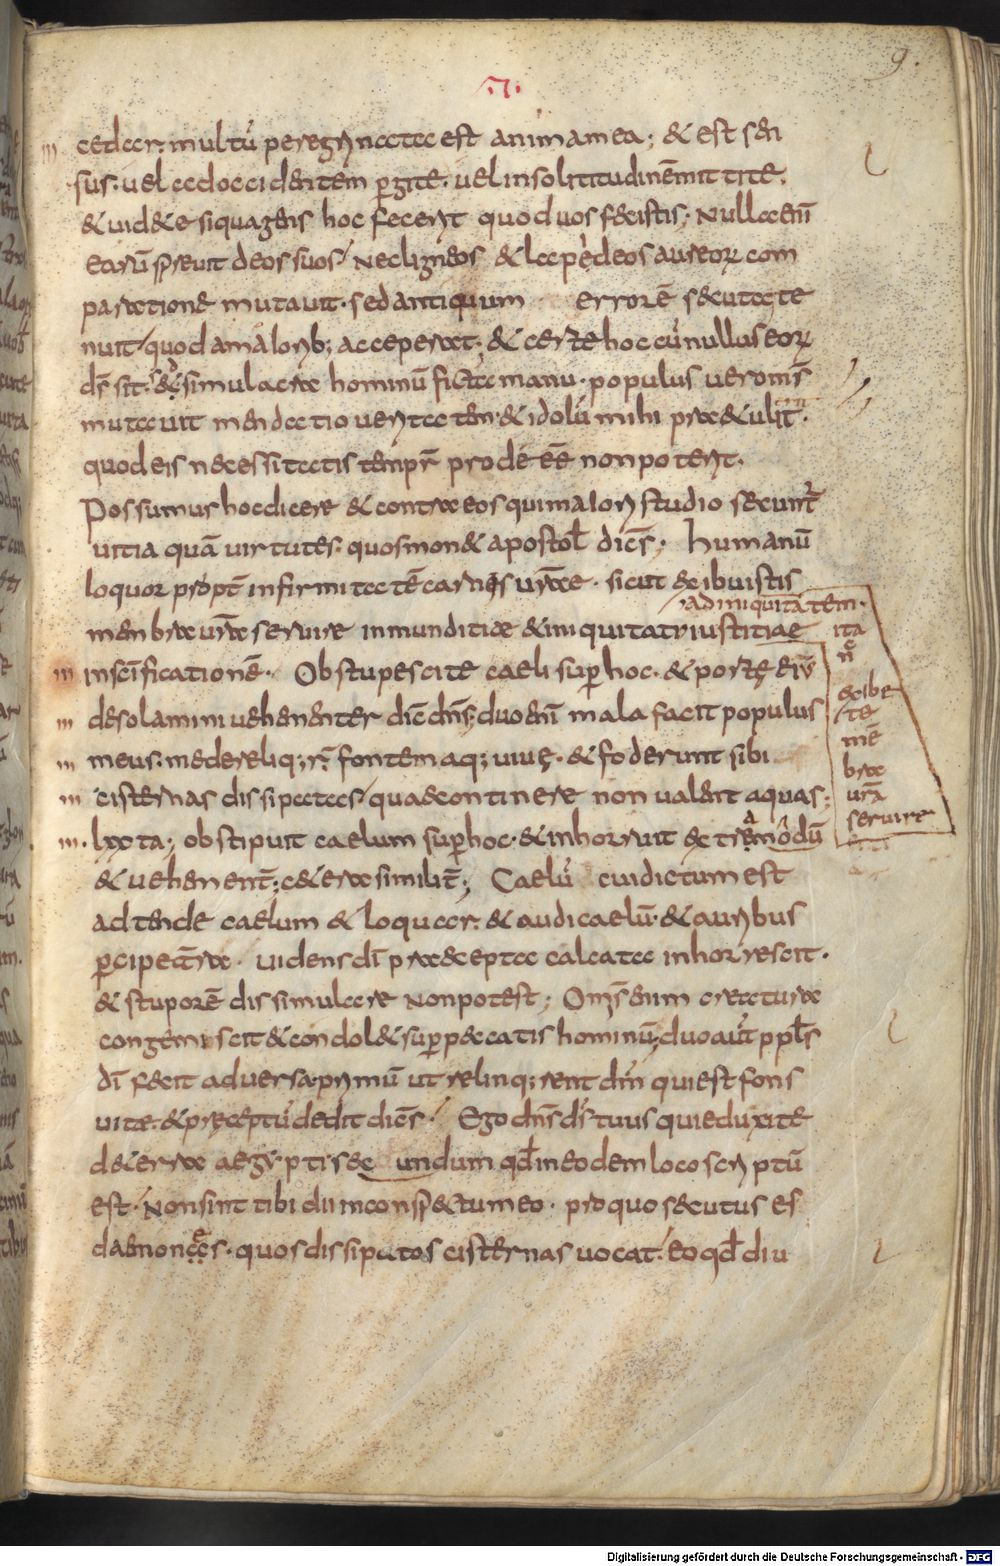 9.
cedar. multū peregrinata est anima mea; & est sen
sus. uel ad occidentem pergite. uel in solititudinem mittite.
& uidete si qua gens hoc fecerit quod uos fecistis; Nulla enī
earū spreuit deos suos/ Ne ligneos & lapideos aureorum com
paratione mutauit. sed antiquum errorē secuta te
nuit/ quod a maiorib; acceperat; & certe hoc cū nullus eorum
ds̄ sit. sed simulacra hominū ficta manu. populus uero ms̄
mutauit me in dactio ueritatem. & idolū mihi praetulit.
quod eis necessitatis tempr̄ prodeēē non poterit.
Possumus hoc dicere & contra eos qui maiori studio secuntr̄
uitia quā uirtutes. quos monet apostol dicēs; Humanū
loquor propt̄ infirmitatē carnis ur̄ae. sicut exibuistis
ad iniquitatem.
membra ur̄a seruire inmunditiae & iniquitatr iustitiae
ita
n̄
exibe
te
mē
bra
ur̄a
seruire
in scīficationē. Obstupescite caeli super hoc. & portę eiꝰ
desolamini uehementer dic̄ dn̄s; duo enī mala fecit populus
meus. me dereliq;r̄ fontem aq; uiuę. & foderunt sibi
cisternas dissipatas/ quae continere non ualent aquas;
lxxta; obstipuit caelum super hoc. & inhorruit extra modū
& uehement̄; cetera similit̄; Caelū cui dictum est
adtende caelum & loquar. & audi caelū. & auribus
percipe terra. uidens dī praecepta calcata inhorrescit.
& stuporē dissimulare non potest; Om̄s enim creaturae
congemescit & condolet super peccatis hominū; duo aūt ppl̄s
dī fecit aduersa. primū ut relinq;rent dm̄ qui est fons
uitae. & pręceptū dedit dicēs/ Ego dn̄s ds̄ tuus qui eduxi te
de terra aegypti. secundum qđ in eodem loco scriptū
est/ Non sint tibi dii in conspectu meo. pro quo secutus es
daemonas. quos dissipatas cisternas uocat/ eo qđ diu
Digitalisierung gefördert durch die Deutsche Forschungsgemeinschaft - DFG